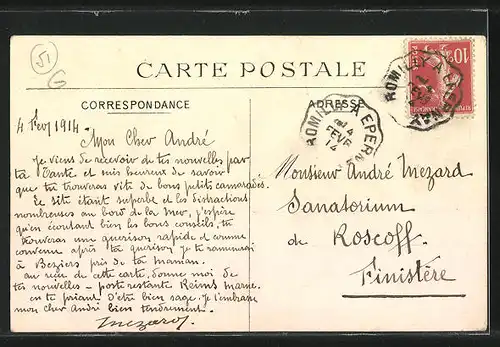 51
G
CARTE POSTALE
CORRESPONDANCE
ADRESSE
10
ROMILLY A EPERNAY
ROMILLY A EPERNAY
4
FEVR
14
4 Fevr 1914
Mon Cher André
Je viens de recevoir de tes nouvelles par
ta tante et suis heureux de savoir
que tu trouveras vite de bons petits camarades.
Le site étant superbe et les distractions
nombreuses au bord de la mer, j'espère
qu'en écoutant bien les bons conseils, tu
trouveras une guerison rapide et comme
convenu après ta guerison je te ramenerai
à Beziers près de ta Maman.
au reçu de cette carte, donne moi de
tes nouvelles - poste restante Reims Marne.
en te priant d'être bien sage. je t'embrasse
mon cher André bien tendrement.
Mezard
Monsieur André Mezard
Sanatorium
de Roscoff.
Finistère